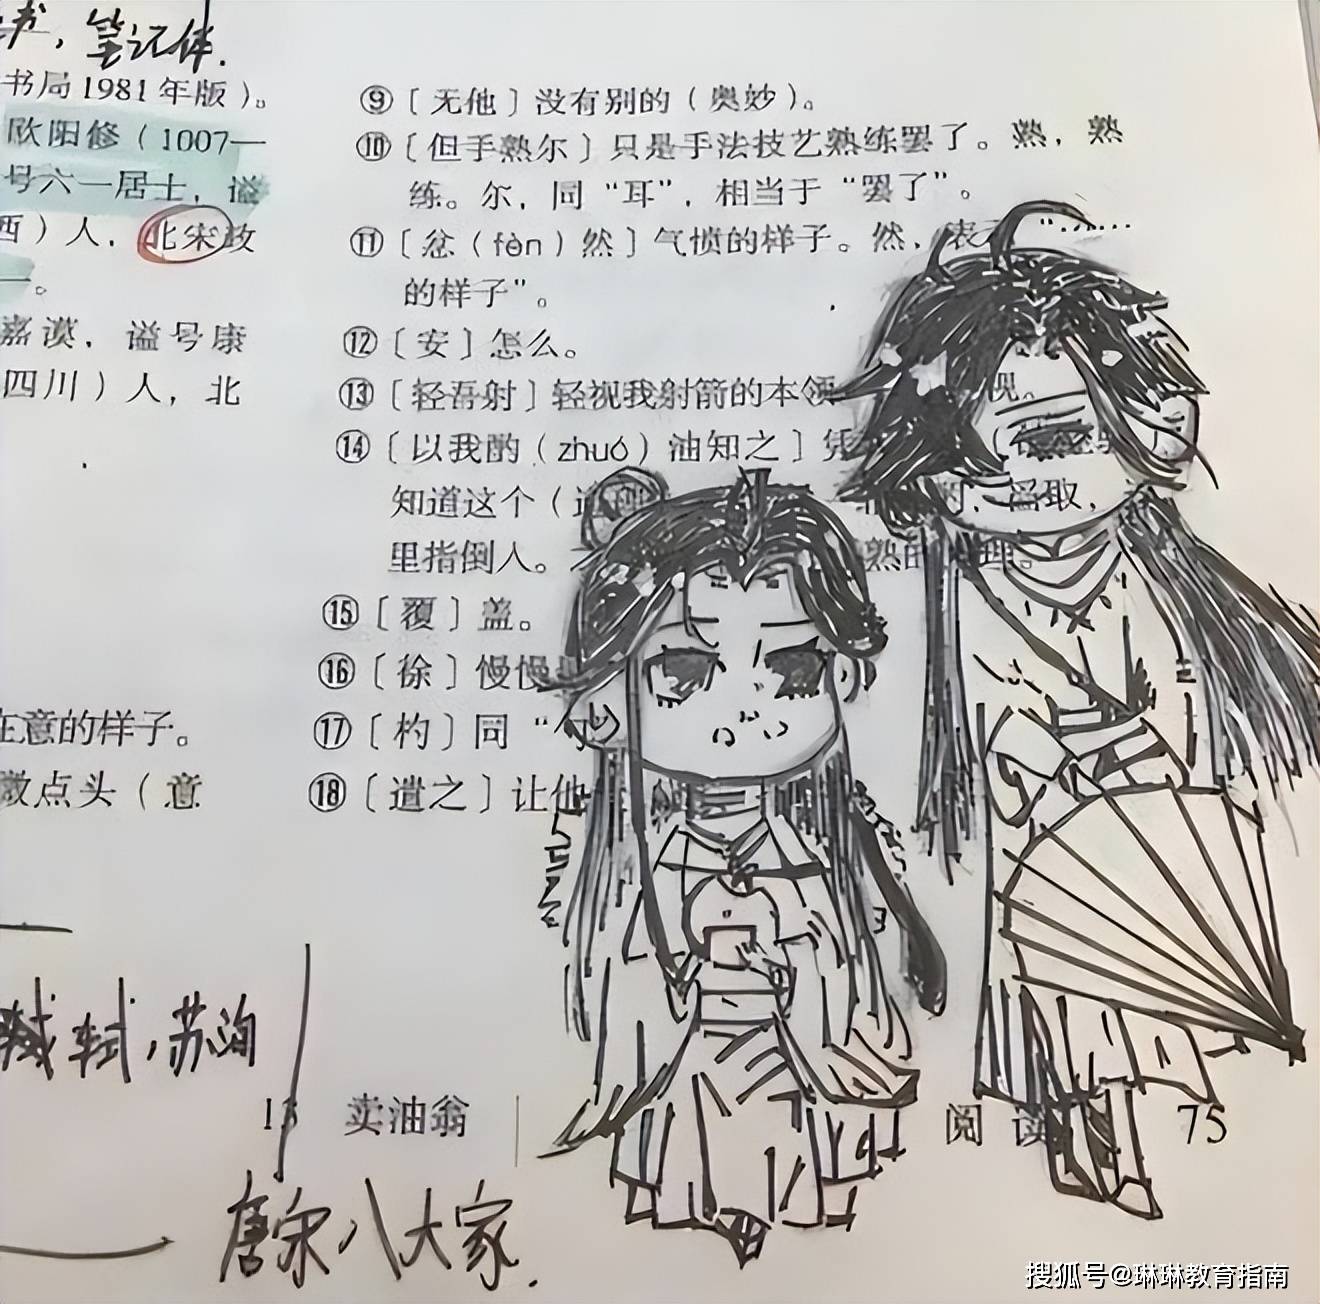 书，笔记体.
书局1981年版）。
欧阳修（1007—
号六一居士，谥
西）人，北宋政
—。
嘉谟，谥号康
四川）人，北
在意的样子。
微点头（意
⑨〔无他〕没有别的（奥妙）。
⑩〔但手熟尔〕只是手法技艺熟练罢了。熟，熟
练。尔，同“耳”，相当于“罢了”。
⑪〔忿（fèn）然〕气愤的样子。然，表示“……
的样子”。
⑫〔安〕怎么。
⑬〔轻吾射〕轻视我射箭的本领 视。
⑭〔以我酌（zhuó）油知之〕凭
知道这个（道理 取，
里指倒入。 熟的 理。
⑮〔覆〕盖。
⑯〔徐〕慢慢
⑰〔杓〕同“
⑱〔遣之〕让他
轼，苏洵
13 卖油翁
阅读 75
唐宋八大家.
搜狐号@琳琳教育指南